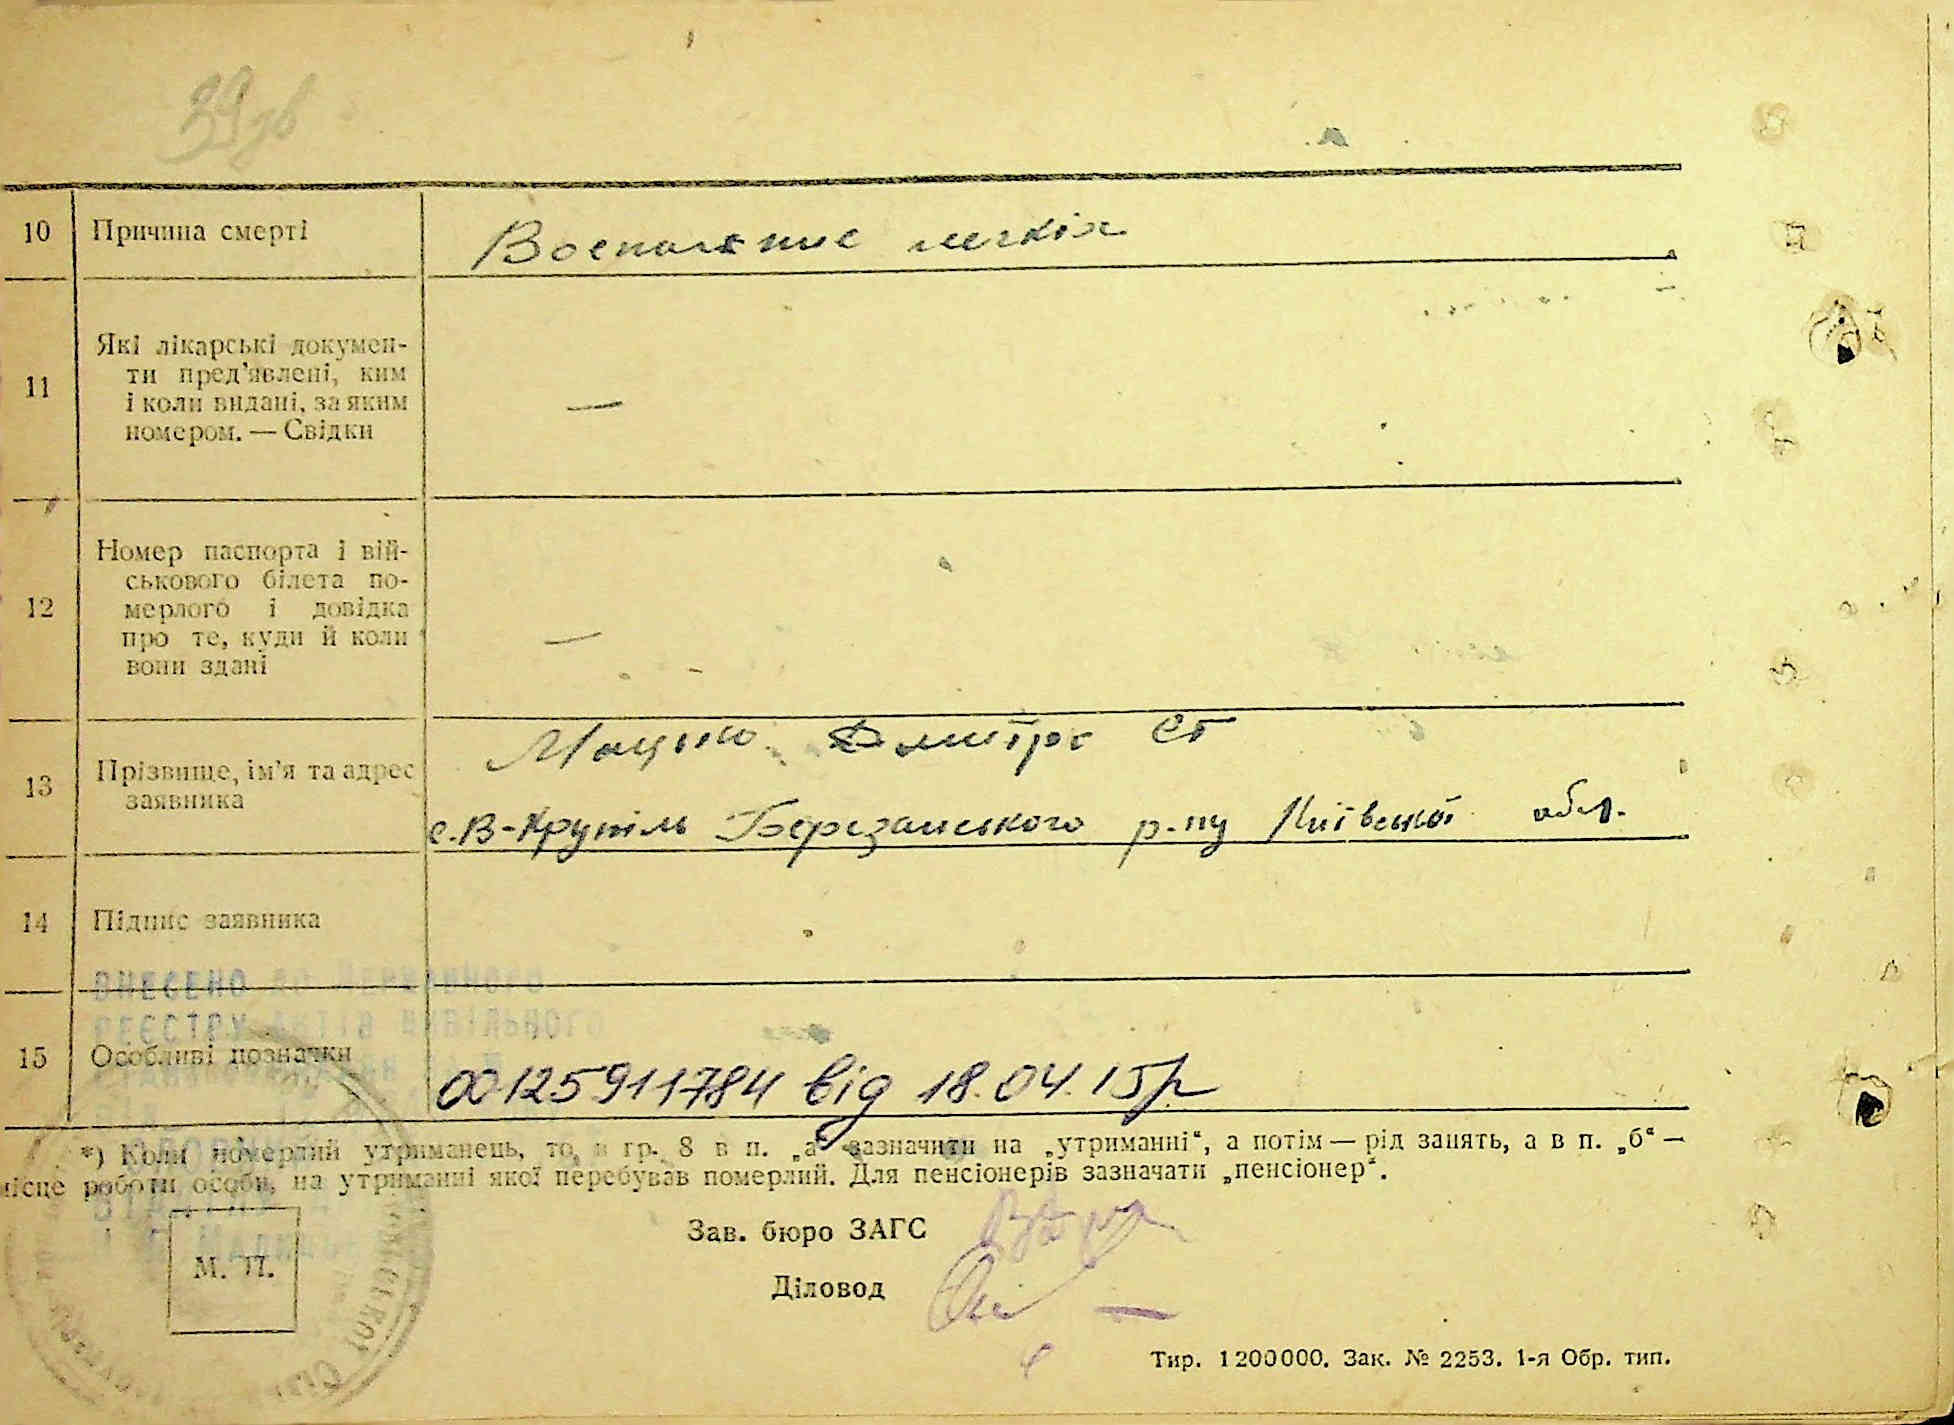 39зв
10 Причина смерті Воспаление легкіх
11 Які лікарські докумен-
ти пред'явлені, ким
і коли видані, за яким
номером. — Свідки —
12 Номер паспорта і вій-
ськового білета по-
мерлого і довідка
про те, куди й коли
вони здані —
13 Прізвище, ім'я та адрес
заявника
Дмитро Ст
с. В-Крупіль Березанського р-ну Київської обл.
14 Підпис заявника
ВНЕСЕНО до Державного
РЕЄСТРУ АКТІВ ЦИВІЛЬНОГО
15 Особливі позначки
00125911784 від 18.04.15р
*) Коли померлий утриманець, то, в гр. 8 в п. „а“ зазначити на „утриманні“, а потім — рід занять, а в п. „б“ —
місце роботи особи, на утриманні якої перебував померлий. Для пенсіонерів зазначати „пенсіонер“.
Зав. бюро ЗАГС
М. П.
Діловод
Тир. 1200000. Зак. № 2253. 1-я Обр. тип.